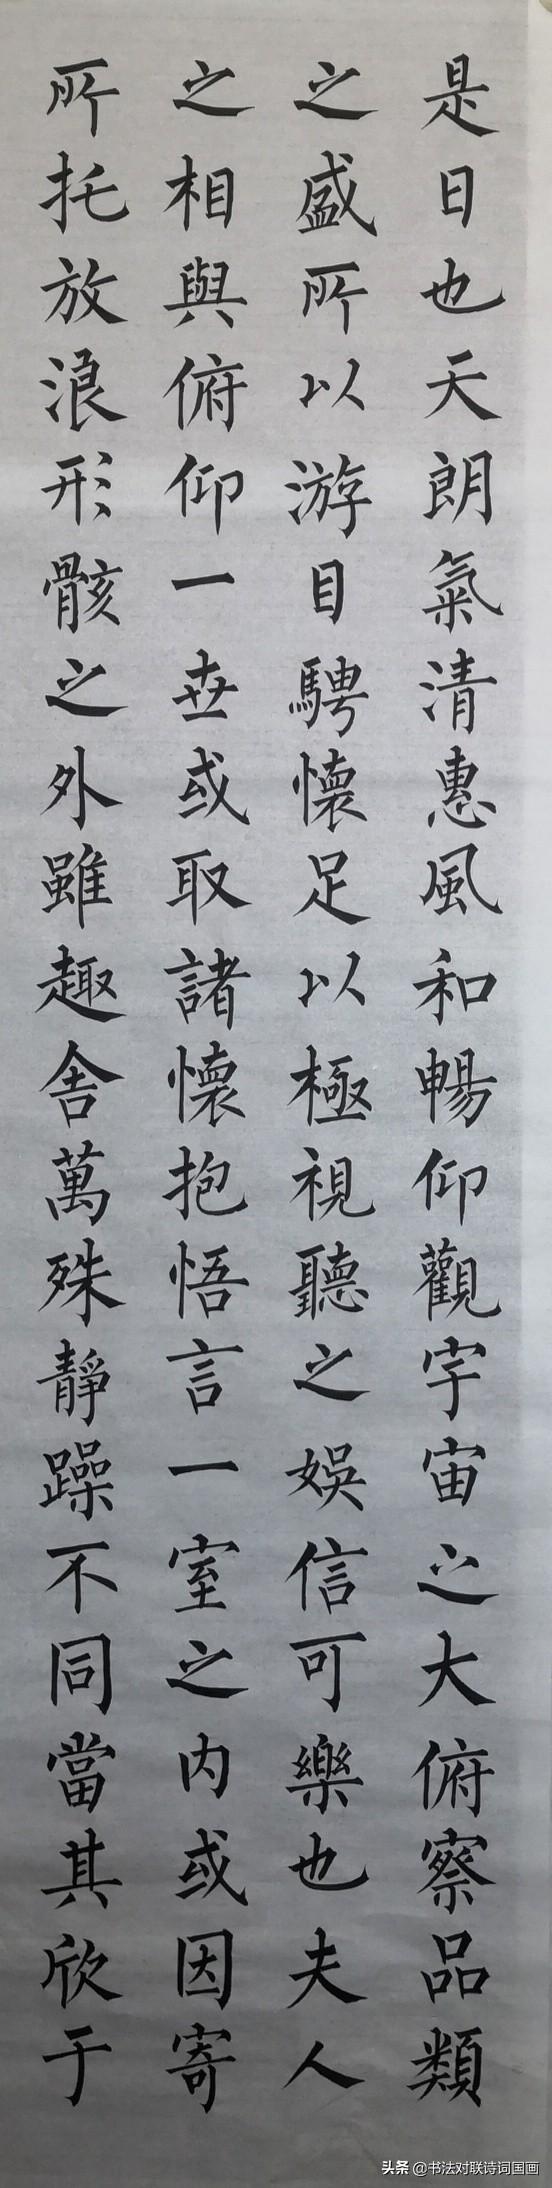 是日也天朗氣清惠風和暢仰觀宇宙之大俯察品類
之盛所以游目騁懷足以極視聽之娛信可樂也夫人
之相與俯仰一世或取諸懷抱悟言一室之内或因寄
所托放浪形骸之外雖趣舍萬殊靜躁不同當其欣于
头条 @书法对联诗词国画